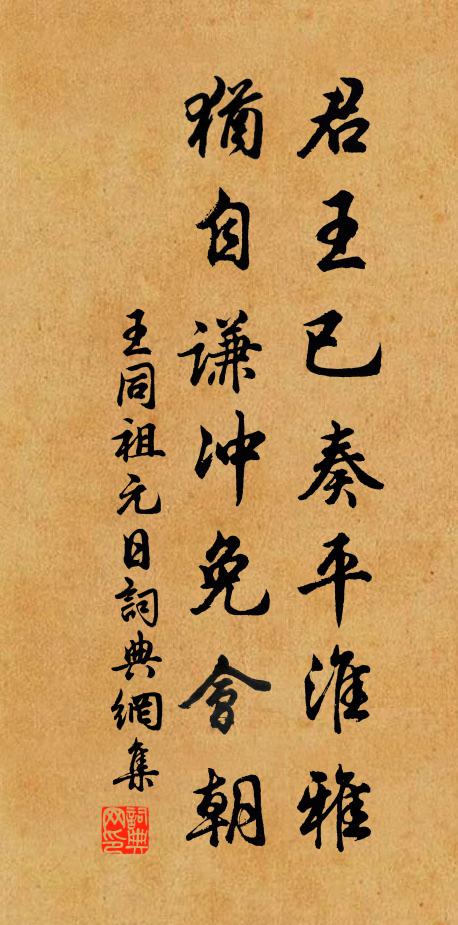 君王已奏平淮雅
猶自謙沖免會朝
王同祖元日詞典網集
詞典網印